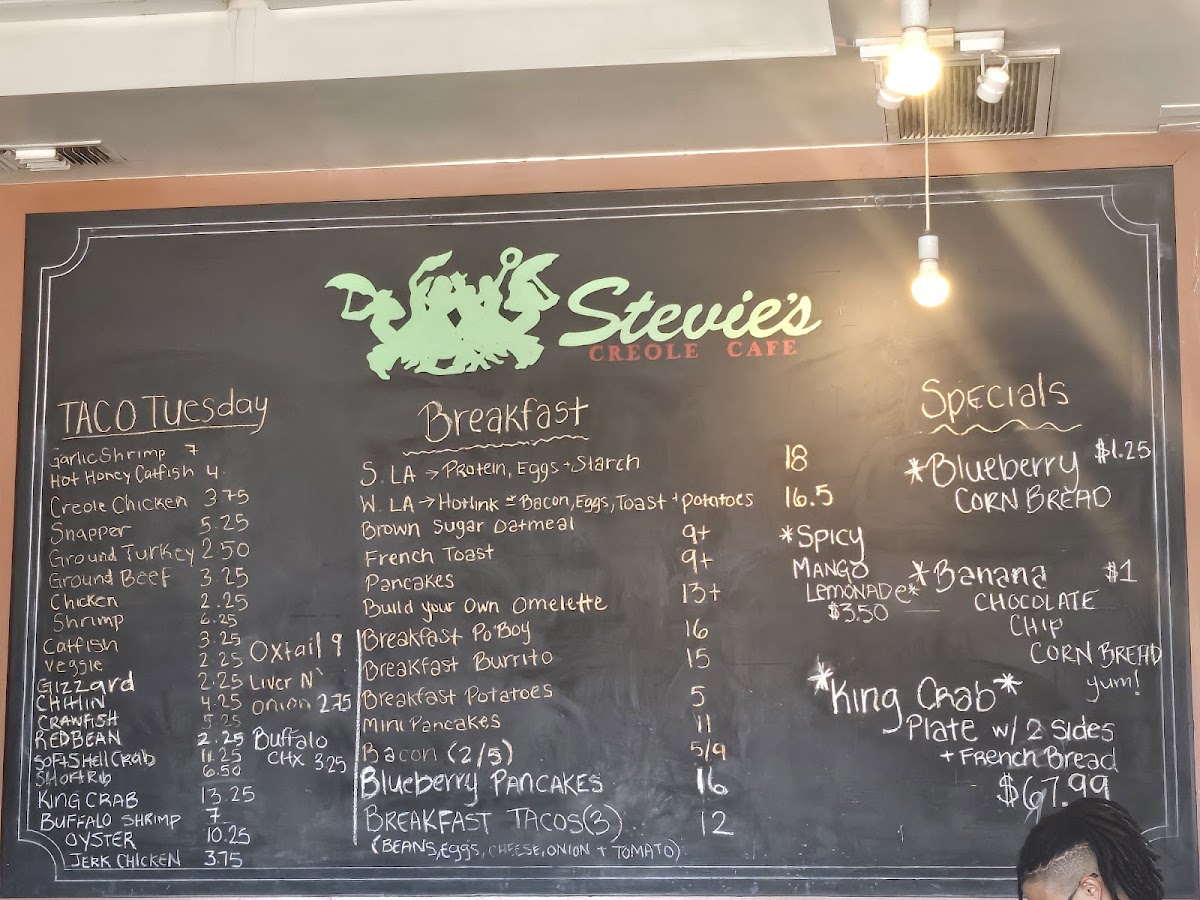 Stevie's
CREOLE CAFE
TACO Tuesday
Garlic Shrimp 7
Hot Honey Catfish 4
Creole Chicken 3 75
Snapper 5.25
Ground Turkey 2.50
Ground Beef 3 25
Chicken 2.25
Shrimp 6.25
Catfish 3.25
Veggie 2.25
Gizzard 2.25
CHITLIN 4.25
CRAWFISH 5.25
RED BEAN 2.25
SOFT SHELL CRAB 11.25
SHORT RIB 6.50
KING CRAB 13.25
BUFFALO SHRIMP 7
OYSTER 10.25
JERK CHICKEN 3.75
Oxtail 9
Liver N'
Onion 2.75
Buffalo
CHX 3.25
Breakfast
S. LA → Protein, Eggs + Starch 18
W. LA → Hotlink Bacon, Eggs, Toast + potatoes 16.5
Brown Sugar Oatmeal 9+
French Toast 9+
Pancakes 13+
Build your Own Omelette
Breakfast Po'Boy 16
Breakfast Burrito 15
Breakfast Potatoes 5
Mini Pancakes 11
Bacon (2/5) 5/9
Blueberry PANCAKES 16
BREAKFAST TACOS (3) 12
(BEANS, EGGS, CHEESE, ONION + TOMATO)
*Spicy
MANGO
LEMONADE*
$3.50
Specials
*Blueberry $1.25
CORN BREAD
*Banana $1
CHOCOLATE
CHIP
CORN BREAD
yum!
*King Crab*
Plate w/ 2 Sides
+ French Bread
$67.99